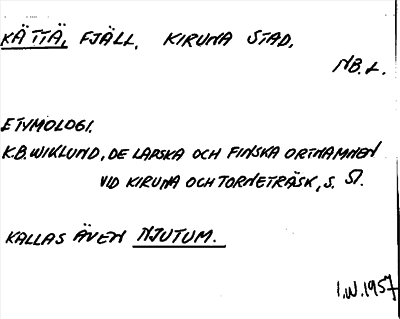 KÄTTÄ, FJÄLL. KIRUNA STAD.
NB. L.
ETYMOLOGI.
K.B. WIKLUND, DE LAPSKA OCH FINSKA ORTNAMNEN
VID KIRUNA OCH TORNETRÄSK, S. 51.
KALLAS ÄVEN NJUTUM.
I.W. 1957